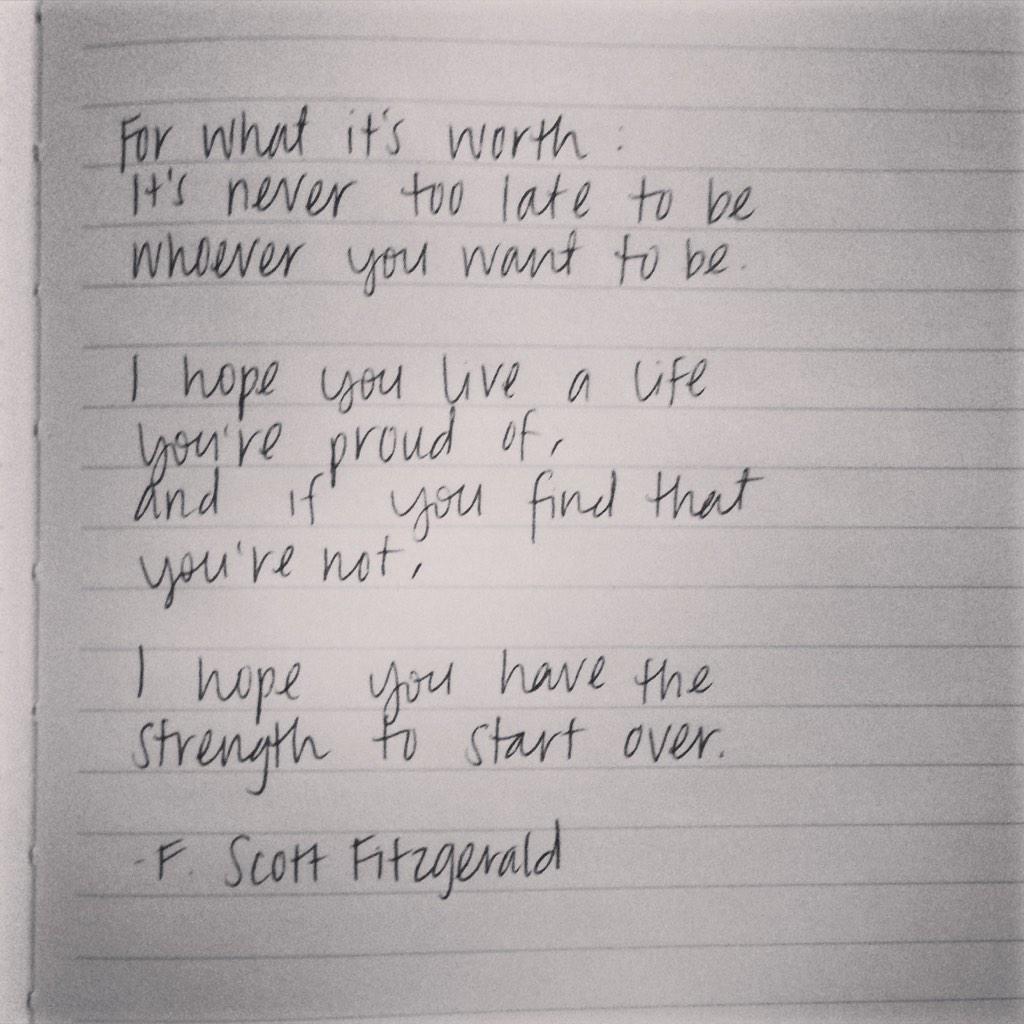 For what it's worth:
It's never too late to be
whoever you want to be.
I hope you live a life
you're proud of,
and if you find that
you're not,
I hope you have the
strength to start over.
-F. Scott Fitzgerald